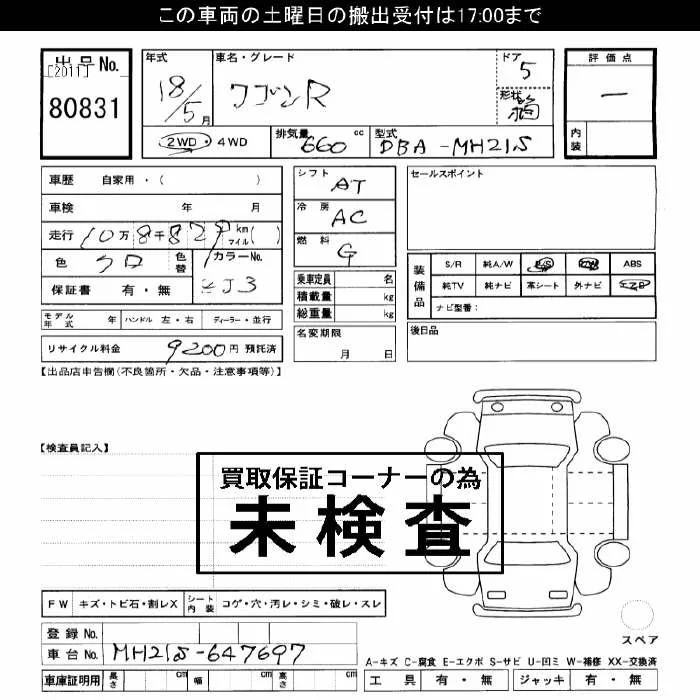 この車両の土曜日の搬出受付は17:00まで
出品No.
[2011]
80831
年式
18/5月
車名・グレード
ワゴンR
ドア
5
形状
箱
評価点
―
内装
2WD・4WD
排気量 660 cc
型式 DBA-MH21S
車歴 自家用・( )
車検 年 月
走行 10万8千829 km マイル( )
色 クロ 色替 カラーNo. ZJ3
保証書 有・無
モデル年式 年 ハンドル 左・右 ディーラー・並行
リサイクル料金 9200円 預託済
シフト AT
冷房 AC
燃料 G
乗車定員 名
積載量 kg
総重量 kg
名変期限
月 日
セールスポイント
装備品
S/R 純A/W P/S P/W ABS
純TV 純ナビ 革シート 外ナビ エアB
ナビ型番:
後日品
【出品店申告欄(不良箇所・欠品・注意事項等)】
【検査員記入】
買取保証コーナーの為
未検査
FW キズ・トビ石・割レX シート内装 コゲ・穴・汚レ・シミ・破レ・スレ
登録No.
車台No. MH21S-647697
車庫証明用 長さ cm 幅 cm 高さ cm
スペア
A-キズ C-腐食 E-エクボ S-サビ U-凹ミ W-補修 XX-交換済
工具 有・無 ジャッキ 有・無